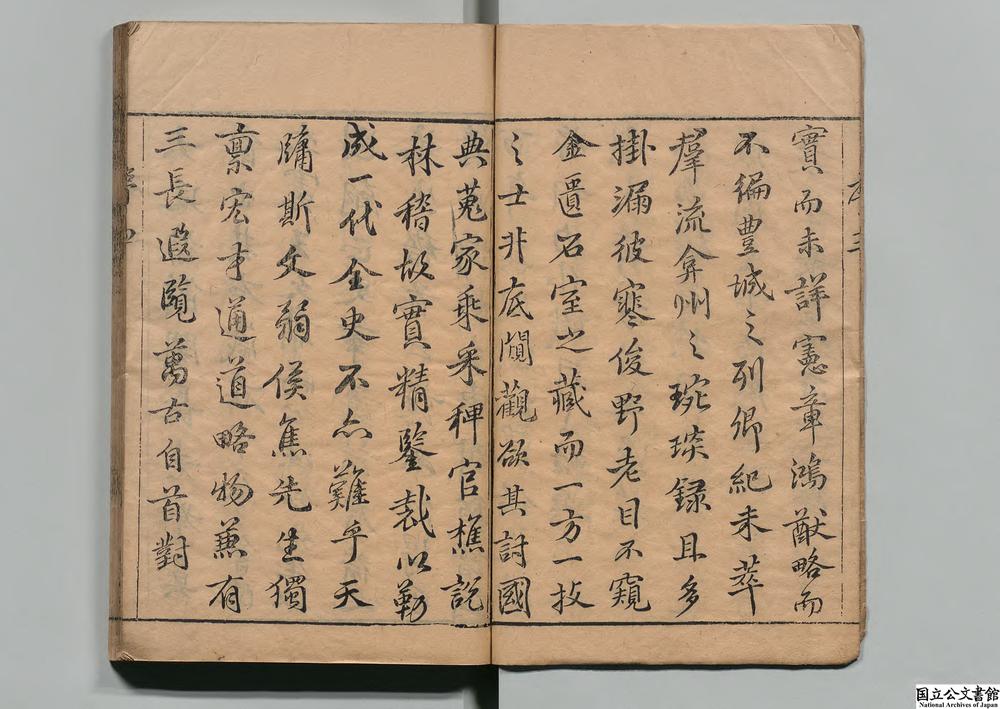 實而未詳憲章鴻猷略而
不徧豊城之列卿紀未萃
羣流弇州之琬琰録且多
掛漏彼寒俊野老目不窺
金匱石室之藏而一方一技
之士非底闚觀欲其討國
典蒐家乘采稗官樵説
林稽故實精鑒裁以勒
成一代全史不亦難乎天
牖斯文弱侯焦先生獨
禀宏才通道略物兼有
三長遐覽萬古自首對
國立公文書館
National Archives of Japan